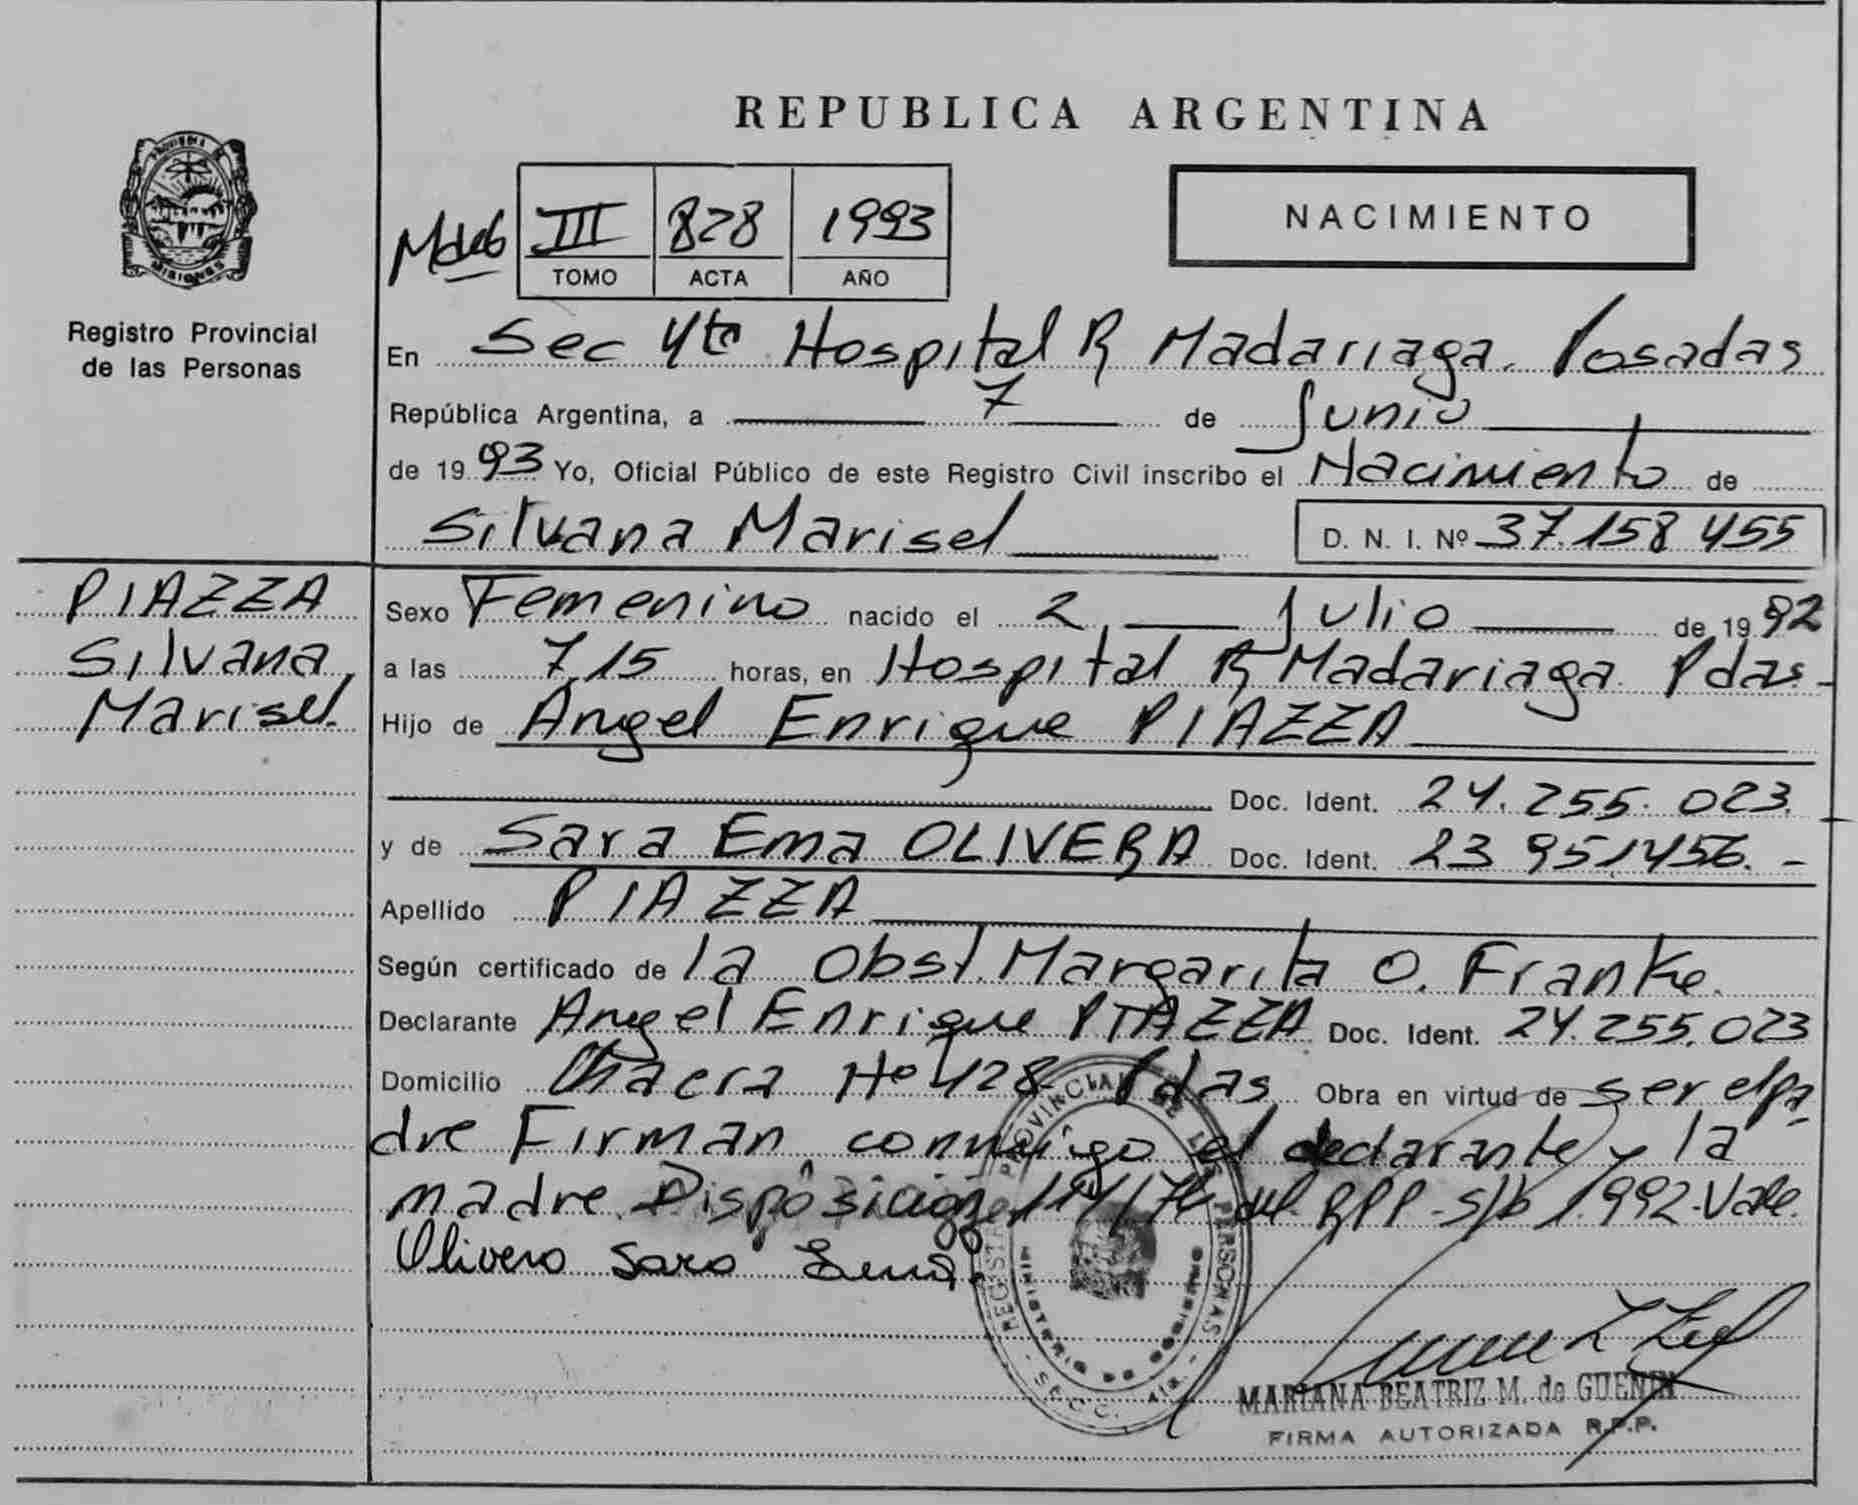 REPUBLICA ARGENTINA
NACIMIENTO
III 828 1993
TOMO ACTA AÑO
MISIONES
Registro Provincial
de las Personas
En Sec 4ta Hospital R Madariaga. Posadas
República Argentina, a 7 de Junio
de 19 93 Yo, Oficial Público de este Registro Civil inscribo el Nacimiento de
Silvana Marisel D. N. I. Nº 37.158 455
PIAZZA
Silvana
Marisel.
Sexo Femenino nacido el 2 Julio de 19 92
a las 7,15 horas, en Hospital R Madariaga Pdas.-
Hijo de Angel Enrique PIAZZA
Doc. Ident. 24.255.023.
y de Sara Ema OLIVERA Doc. Ident. 23 951456.-
Apellido PIAZZA
Según certificado de la Obst. Margarita O. Franke.
Declarante Angel Enrique PIAZZA Doc. Ident. 24.255.023
Domicilio Chacra Nº 128 Pdas Obra en virtud de ser el pa-
dre Firman conmigo el declarante y la
madre. Disposición 114/76 del RPP - S/b 1.992-Vale.
Olivera Sara Ema.
REGISTRO PROVINCIAL DE LAS PERSONAS
MINISTERIO DE GOBIERNO
SECC. 4ta
MARIANA BEATRIZ M. de GUENIN
FIRMA AUTORIZADA R.P.P.